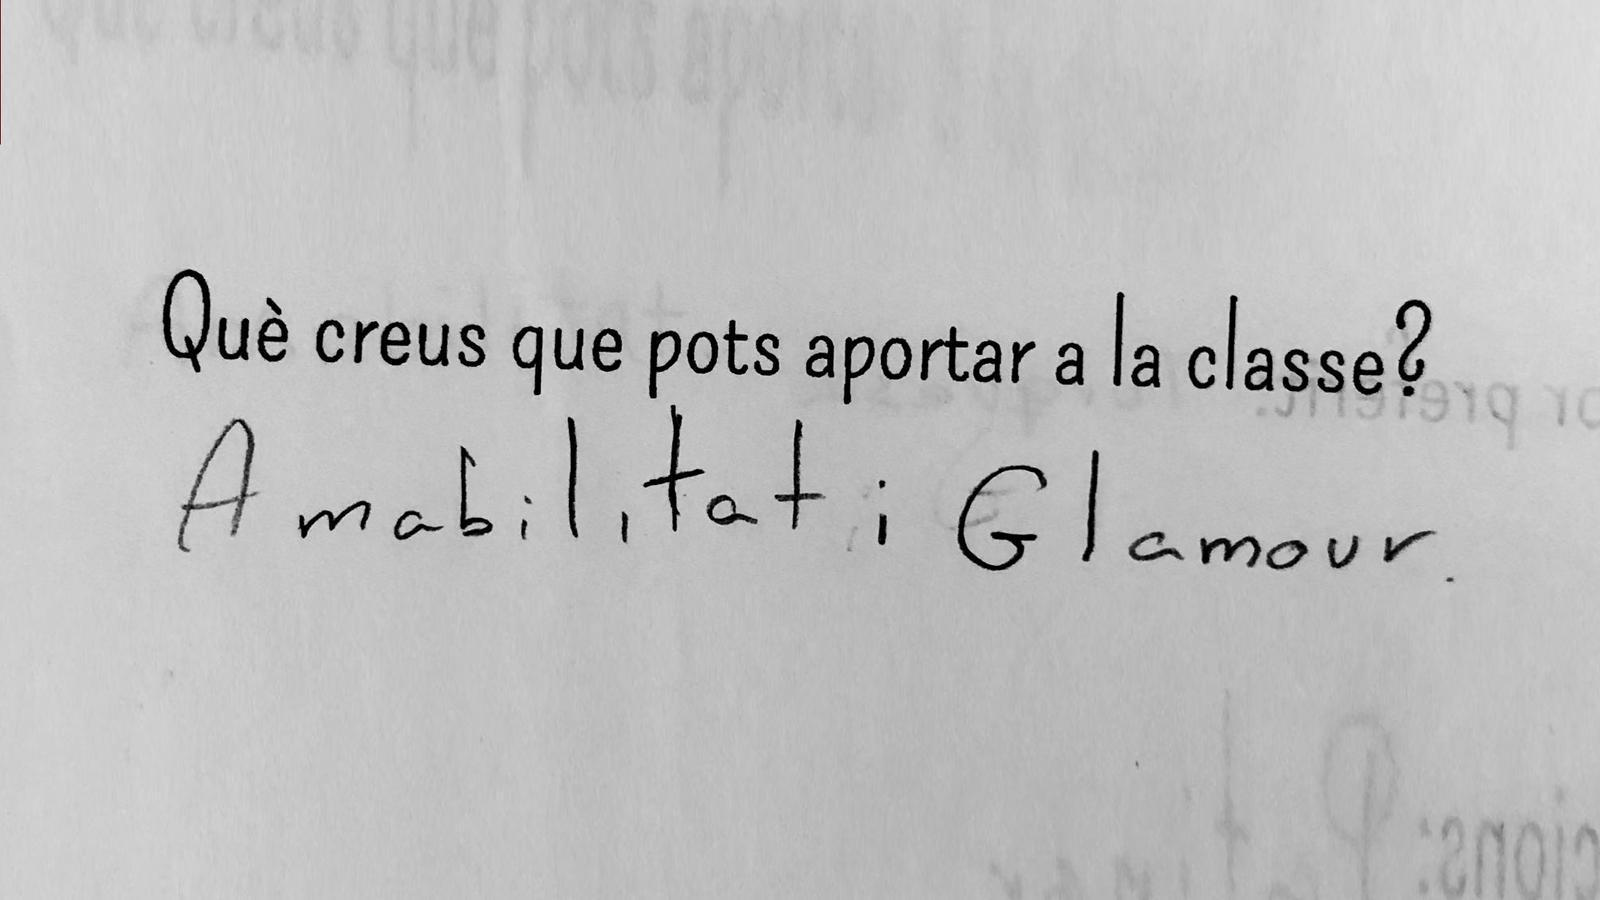 Què creus que pots aportar a la classe?
Amabilitat i Glamour.